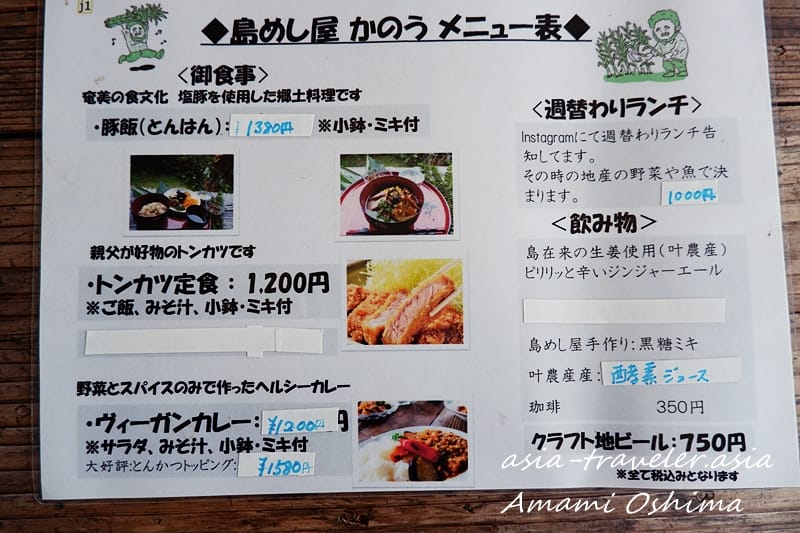 j1
◆島めし屋 かのう メニュー表◆
<御食事>
奄美の食文化 塩豚を使用した郷土料理です
・豚飯(とんはん): 1380円 ※小鉢・ミキ付
親父が好物のトンカツです
・トンカツ定食: 1,200円
※ご飯、みそ汁、小鉢・ミキ付
野菜とスパイスのみで作ったヘルシーカレー
・ヴィーガンカレー: ¥1200円
※サラダ、みそ汁、小鉢・ミキ付
大好評:とんかつトッピング: ¥1580円
<週替わりランチ>
Instagramにて週替わりランチ告
知してます。
その時の地産の野菜や魚で決
まります。
1000円
<飲み物>
島在来の生姜使用(叶農産)
ピリリッと辛いジンジャーエール
島めし屋手作り:黒糖ミキ
叶農産産: 酵素ジュース
珈琲 350円
クラフト地ビール:750円
※全て税込みとなります
asia-traveler.asia
Amami Oshima